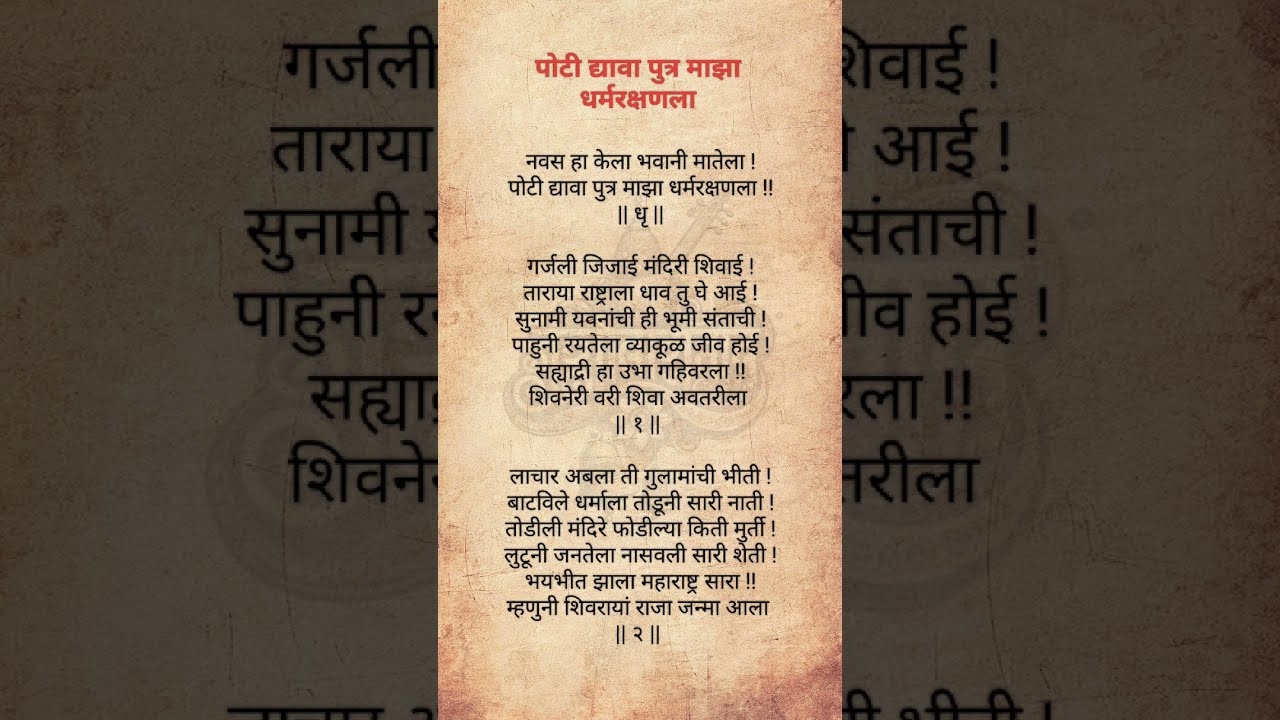 पोटी द्यावा पुत्र माझा
धर्मरक्षणला
नवस हा केला भवानी मातेला !
पोटी द्यावा पुत्र माझा धर्मरक्षणला !!
|| धृ ||
गर्जली जिजाई मंदिरी शिवाई !
ताराया राष्ट्राला धाव तु घे आई !
सुनामी यवनांची ही भूमी संताची !
पाहुनी रयतेला व्याकूळ जीव होई !
सह्याद्री हा उभा गहिवरला !!
शिवनेरी वरी शिवा अवतरीला
|| १ ||
लाचार अबला ती गुलामांची भीती !
बाटविले धर्माला तोडूनी सारी नाती !
तोडीली मंदिरे फोडील्या किती मुर्ती !
लुटूनी जनतेला नासवली सारी शेती !
भयभीत झाला महाराष्ट्र सारा !!
म्हणुनी शिवरायां राजा जन्मा आला
|| २ ||